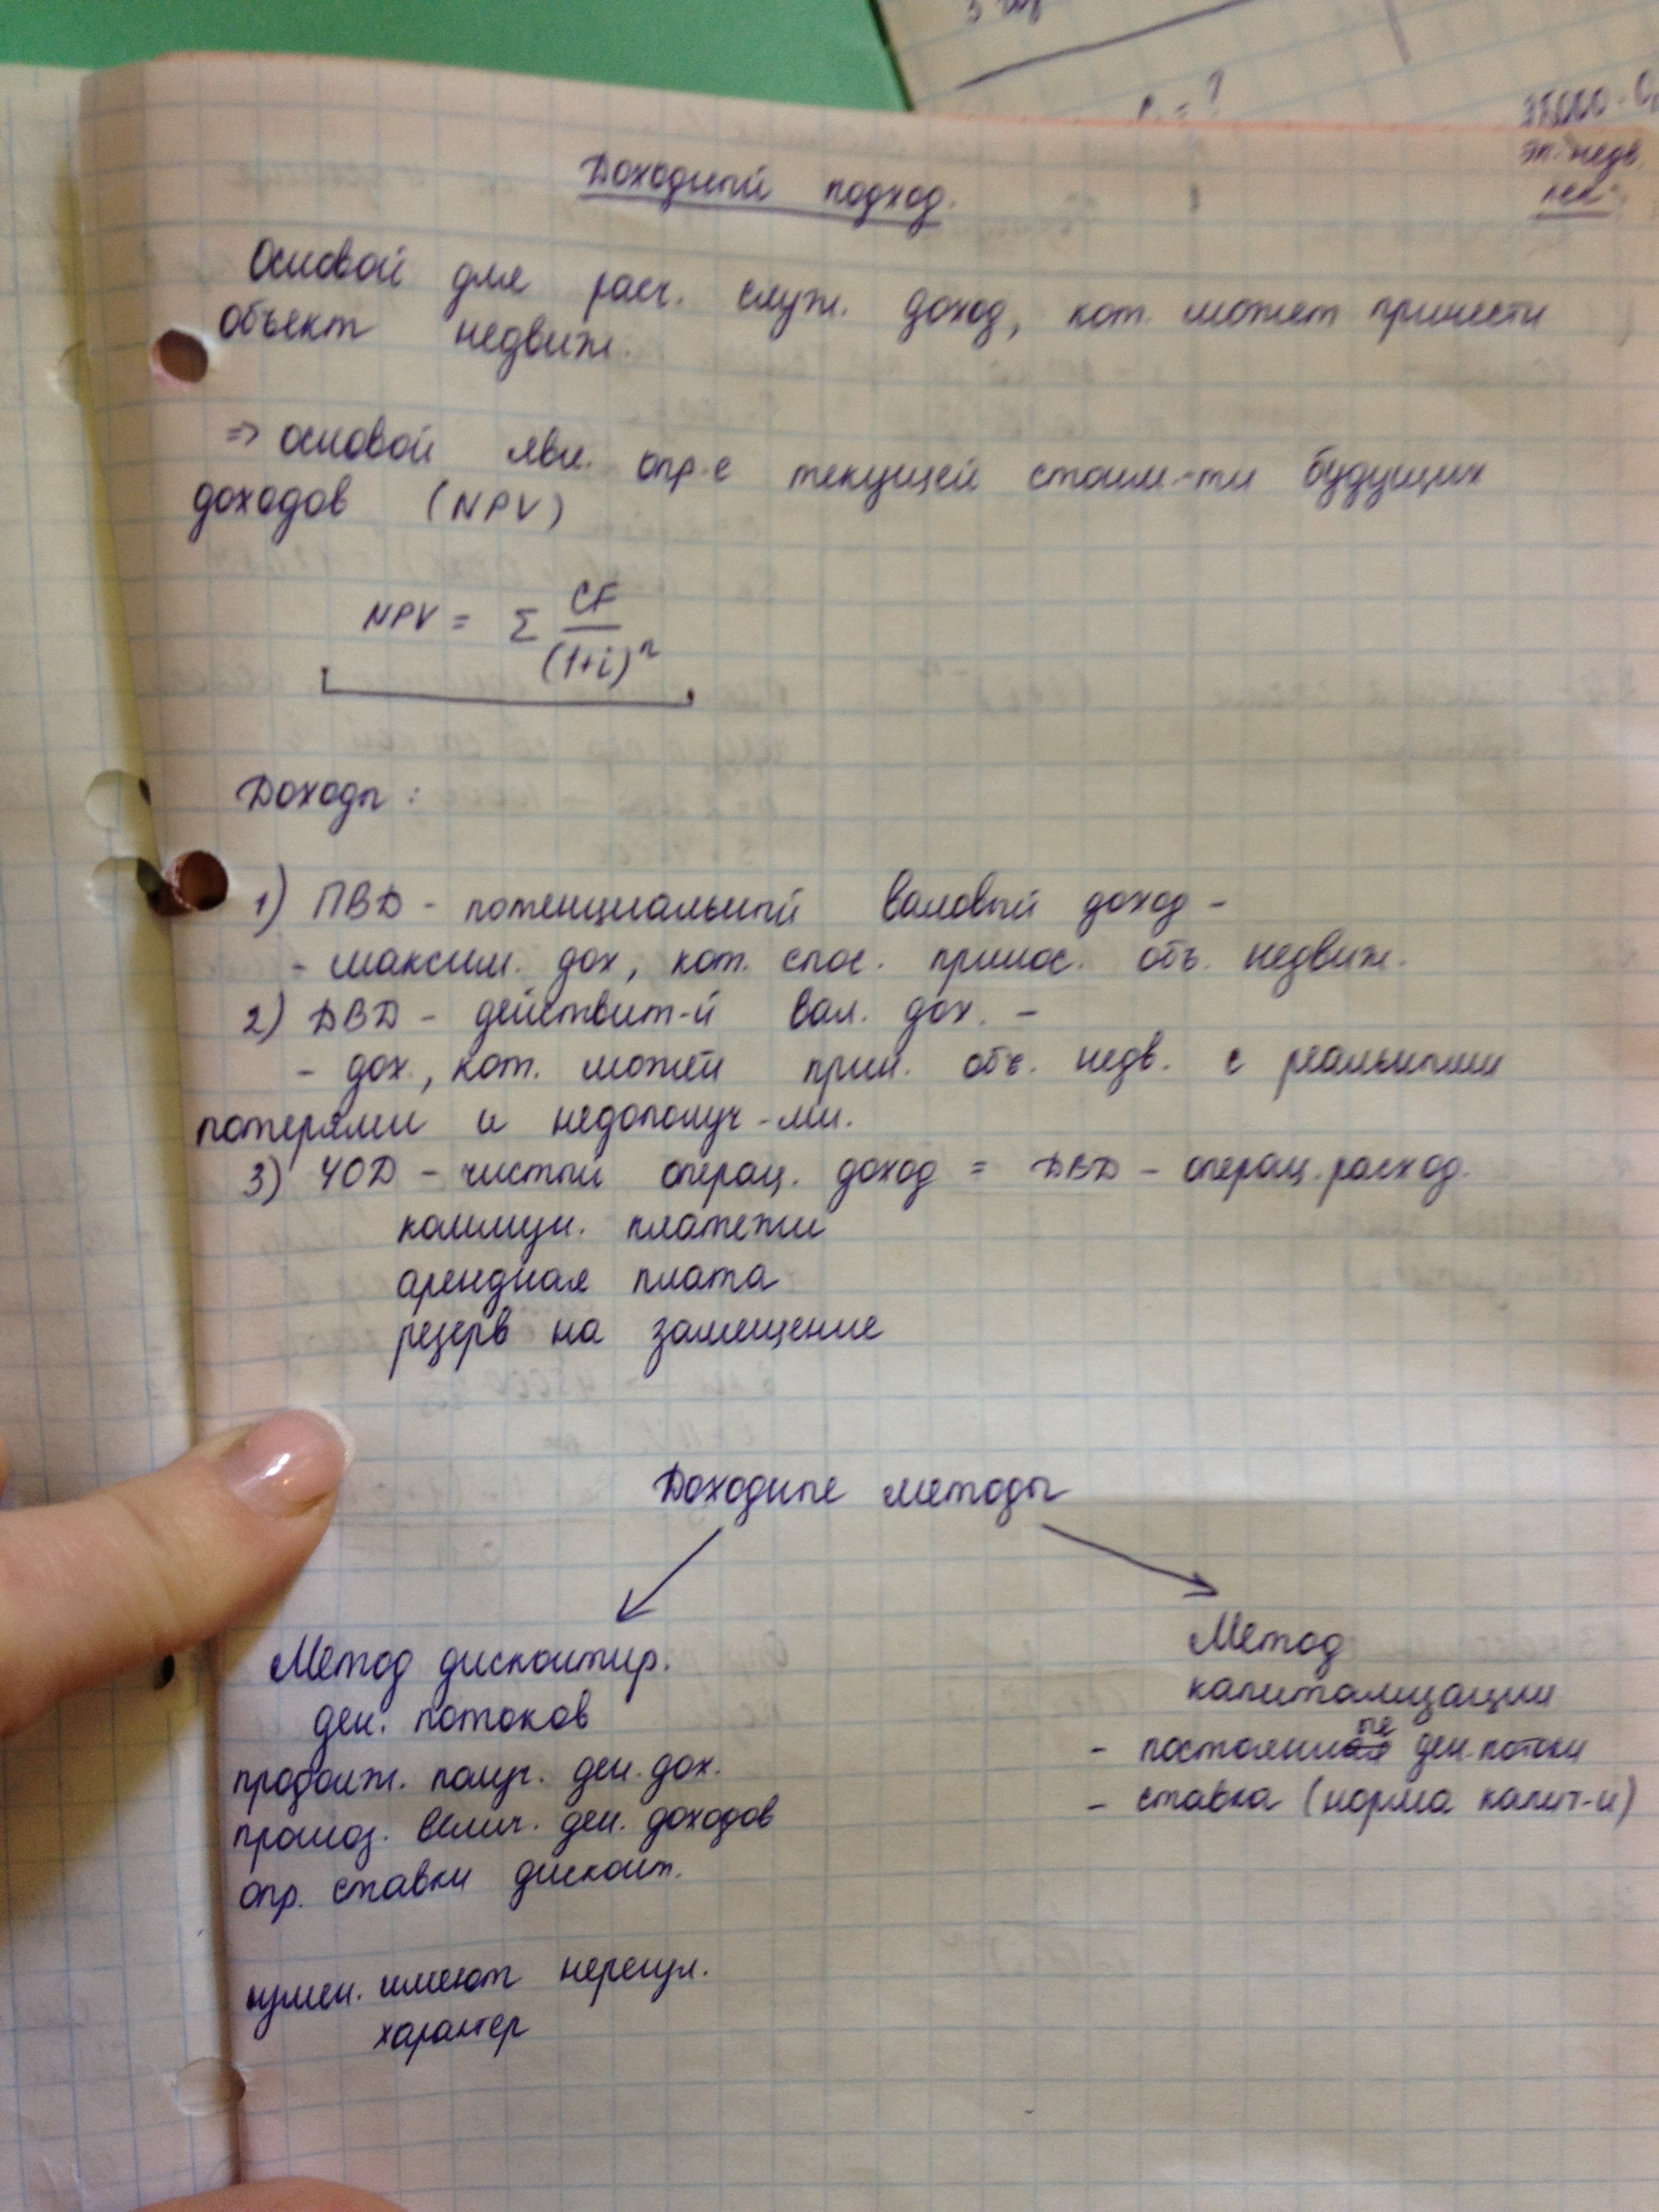 Доходный подход.
эк. недв.
лек.
Основой для расч. служ. доход, кот. может принести
объект недвиж.
=> основой явл. опр-е текущей стоим-ти будущих
доходов (NPV)
NPV = Σ CF
(1+i)^n
Доходы:
1) ПВД - потенциальный валовый доход -
- максим. дох, кот. спос. принос. объ. недвиж.
2) ДВД - действит-й вал. дох. -
- дох., кот. может прин. объ. недв. с реальными
потерями и недополуч-ми.
3) ЧОД - чистый операц. доход = ДВД - операц. расход.
коммун. платежи
арендная плата
резерв на замещение
Доходные методы
Метод дисконтир.
ден. потоков
продолж. получ. ден. дох.
прогноз. велич. ден. доходов
опр. ставки дисконт.
имеют нерегул.
характер
Метод
капитализации
- постоянные ден. потоки
- ставка (норма капит-и)